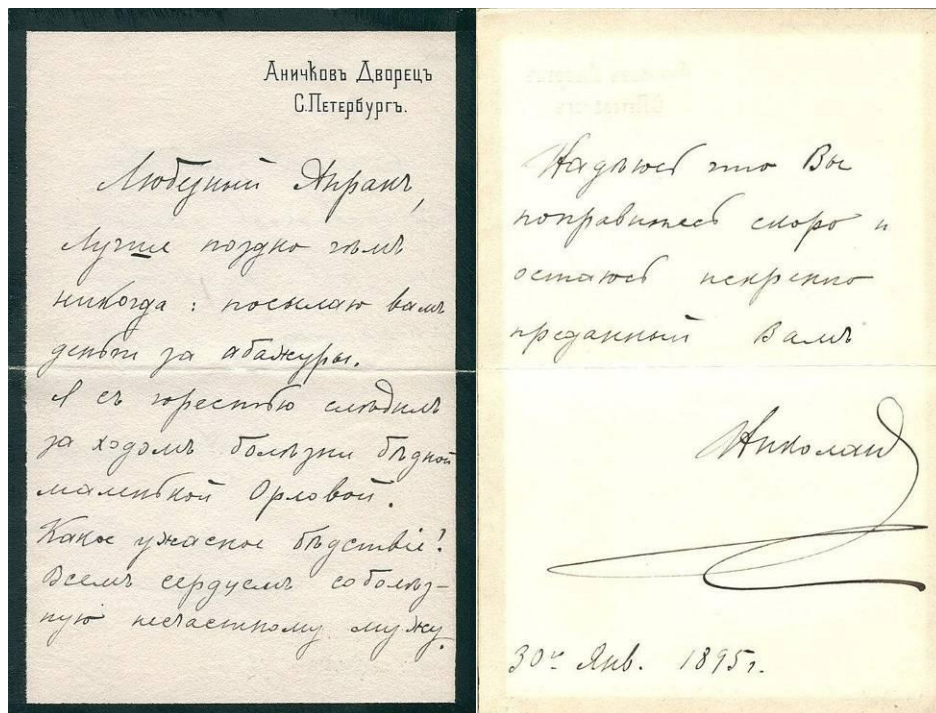 Аничковъ Дворецъ
С.Петербургъ.
Любезный Апракъ,
Лучше поздно чѣмъ
никогда: посылаю вамъ
деньги за абажуры.
Я съ горестью слѣдилъ
за ходомъ болѣзни бѣдной
маленькой Орловой.
Какое ужасное бѣдствіе!
Всемъ сердцемъ соболѣз-
ную несчастному мужу.
Надѣюсь что Вы
поправитесь скоро и
остаюсь искренно
преданный Вамъ
Николай
30го Янв. 1895г.